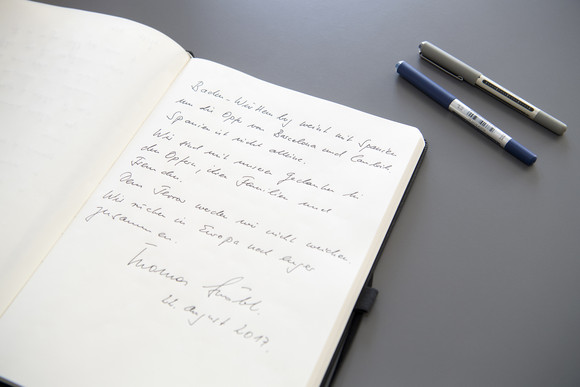 Baden-Württemberg weint mit Spanien
um die Opfer von Barcelona und Cambrils
Spanien ist nicht alleine.
Wir sind mit unseren Gedanken bei
den Opfern, deren Familien und
Freunden.
Dem Terror werden wir nicht weichen
Wir rücken in Europa noch enger
zusammen.
Thomas Strobl.
22. August 2017.